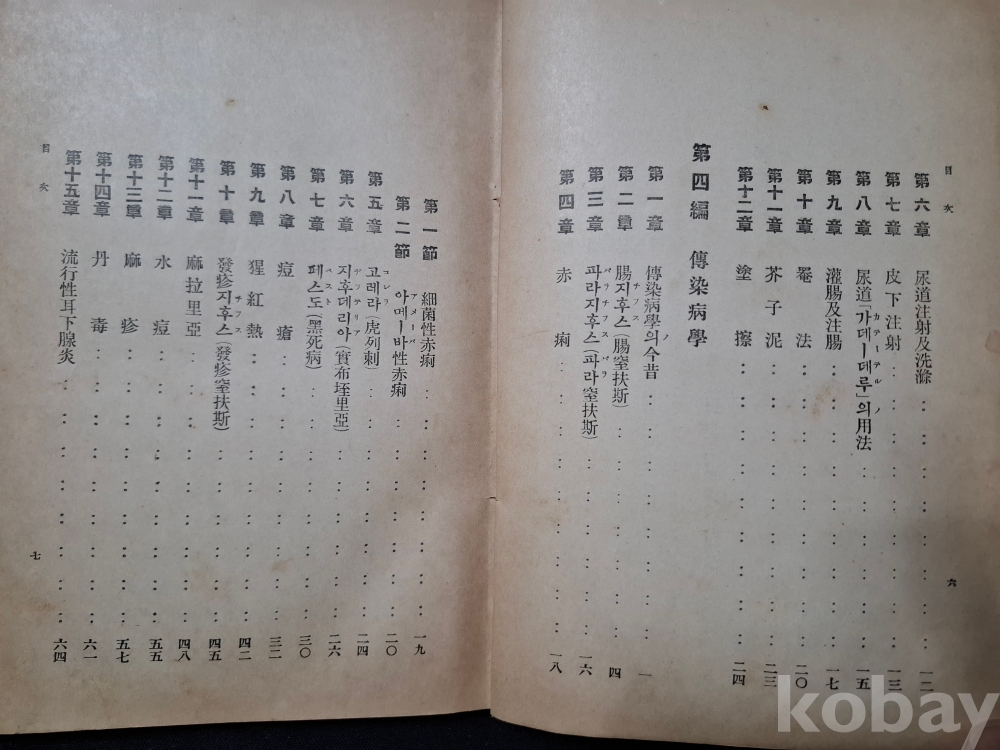 目次
第六章 尿道注射及洗滌 一二
第七章 皮下注射 一三
第八章 尿道「가데ー데루」의用法 一五
カテーテル ノ
第九章 灌腸及注腸 一七
第十章 罨法 二〇
第十一章 芥子泥 二三
第十二章 塗擦 二四
第四編 傳染病學
第一章 傳染病學의今昔 一
ノ
第二章 腸지후스(腸窒扶斯) 四
チフス
第三章 파라지후스(파라窒扶斯) 一六
パラチフス パラ
第四章 赤痢 一八
六
第一節 細菌性赤痢 一九
第二節 아메ー바性赤痢 二〇
アメーバ
第五章 고레라(虎列剌) 二四
コレラ
第六章 지후데리아(實布垤里亞) 二六
ヂフテリア
第七章 페스도(黑死病) 三〇
ペスト
第八章 痘瘡 三二
第九章 猩紅熱 四二
第十章 發疹지후스(發疹窒扶斯) 四五
チフス
第十一章 麻拉里亞 四八
第十二章 水痘 五五
第十三章 麻疹 五七
第十四章 丹毒 六一
第十五章 流行性耳下腺炎 六四
目次
七
kobay